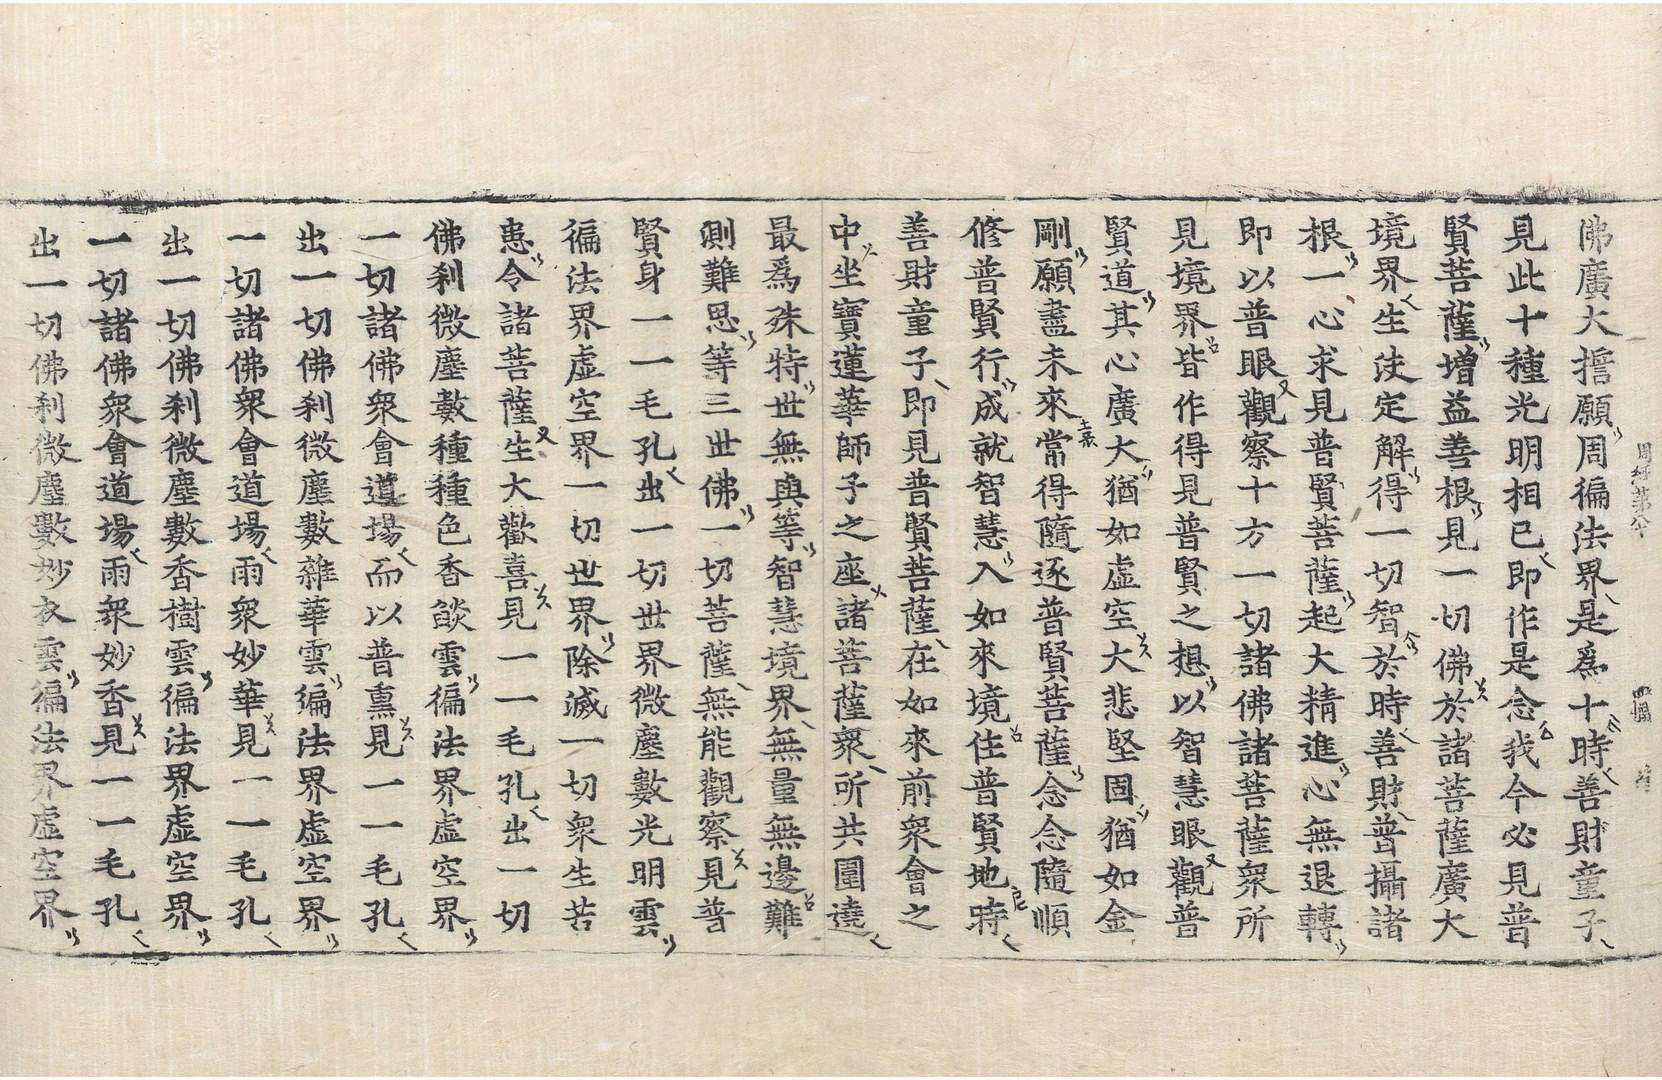 周經第八十 四幅
佛廣大擔願周徧法界是爲十時善財童子
見此十種光明相已即作是念我今必見普
賢菩薩增益善根見一切佛於諸菩薩廣大
境界生決定解得一切智於時善財普攝諸
根一心求見普賢菩薩起大精進心無退轉
即以普眼觀察十方一切諸佛諸菩薩衆所
見境界皆作得見普賢之想以智慧眼觀普
賢道其心廣大猶如虛空大悲堅固猶如金
剛願盡未來常得隨逐普賢菩薩念念隨順
修普賢行成就智慧入如來境住普賢地時
善財童子即見普賢菩薩在如來前衆會之
中坐寶蓮華師子之座諸菩薩衆所共圍遶
最爲殊特世無與等智慧境界無量無邊難
測難思等三世佛一切菩薩無能觀察見普
賢身一一毛孔出一切世界微塵數光明雲
徧法界虛空界一切世界除滅一切衆生苦
患令諸菩薩生大歡喜見一一毛孔出一切
佛刹微塵數種種色香燄雲徧法界虛空界
一切諸佛衆會道場而以普熏見一一毛孔
出一切佛刹微塵數雜華雲徧法界虛空界
一切諸佛衆會道場雨衆妙華見一一毛孔
出一切佛刹微塵數香樹雲徧法界虛空界
一切諸佛衆會道場雨衆妙香見一一毛孔
出一切佛刹微塵數妙衣雲徧法界虛空界